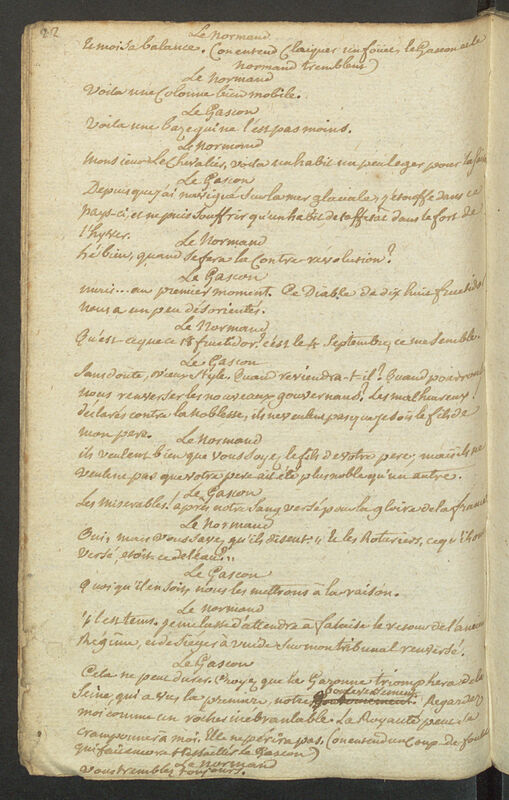 22
Le Normand
et moi sa balance. (on entend claquer un fouet, le Gascon et le
normand tremblent)
Le Normand
Voila une Colonne bien mobile.
Le Gascon
Voila une baze qui ne l'est pas moins.
Le Normand
Monsieur le Chevalier, voila un habit un peu leger pour la
Le Gascon
Depuis que j'ai navigué sur la mer glaciale, j'étouffe dans ce
Pays-ci, et ne puis souffrir qu'un habit de taffetas dans le fort de
l'hyver.
Le Normand
hé bien, quand se fera la Contre-révolution?
Le Gascon
mais... au premier moment. Ce Diable de dix huit fructidor
nous a un peu désorientés.
Le Normand
Qu'est-ce que ce 18 fructidor? c'est le 4 Septembre, ce me semble.
Le Gascon
Sans doute, vieux style. Quand reviendra-t-il? Quand pourrons
nous renverser les nouveaux gouvernans? Les malheureux!
déclarés contre la Noblesse, ils ne veulent pas que je sois le fils de
mon pere.
Le Normand
ils veulent bien que vous soyez le fils de votre pere; mais ils ne
veulent pas que votre pere ait été plus noble qu'un autre.
Le Gascon
Les miserables! après notre Sang versé pour la gloire de la france
Le Normand
Oui, mais vous savez qu'ils disent: " Et les Roturiers, ce qu'ils ont
versé, étoit-ce de l'eau? "
Le Gascon
Quoi qu'il en soit, nous les mettrons à la raison.
Le Normand
il est tems. je me lasse d'attendre à falaise le retour de l'ancien
Régime, et de siéger à vuide sur mon tribunal renversé.
Le Gascon
Cela ne peut durer. Croyez que la Garonne triomphera de la
Seine, qui a vu, la premiere, notre bouleversement. Regardez
moi comme un rocher inebranlable. La Royauté peut se
cramponner à moi. Elle ne périra pas. (on entend un Coup de fouet
qui fait encore tressaillir le Gascon)
Le Normand
vous tremblez toujours.